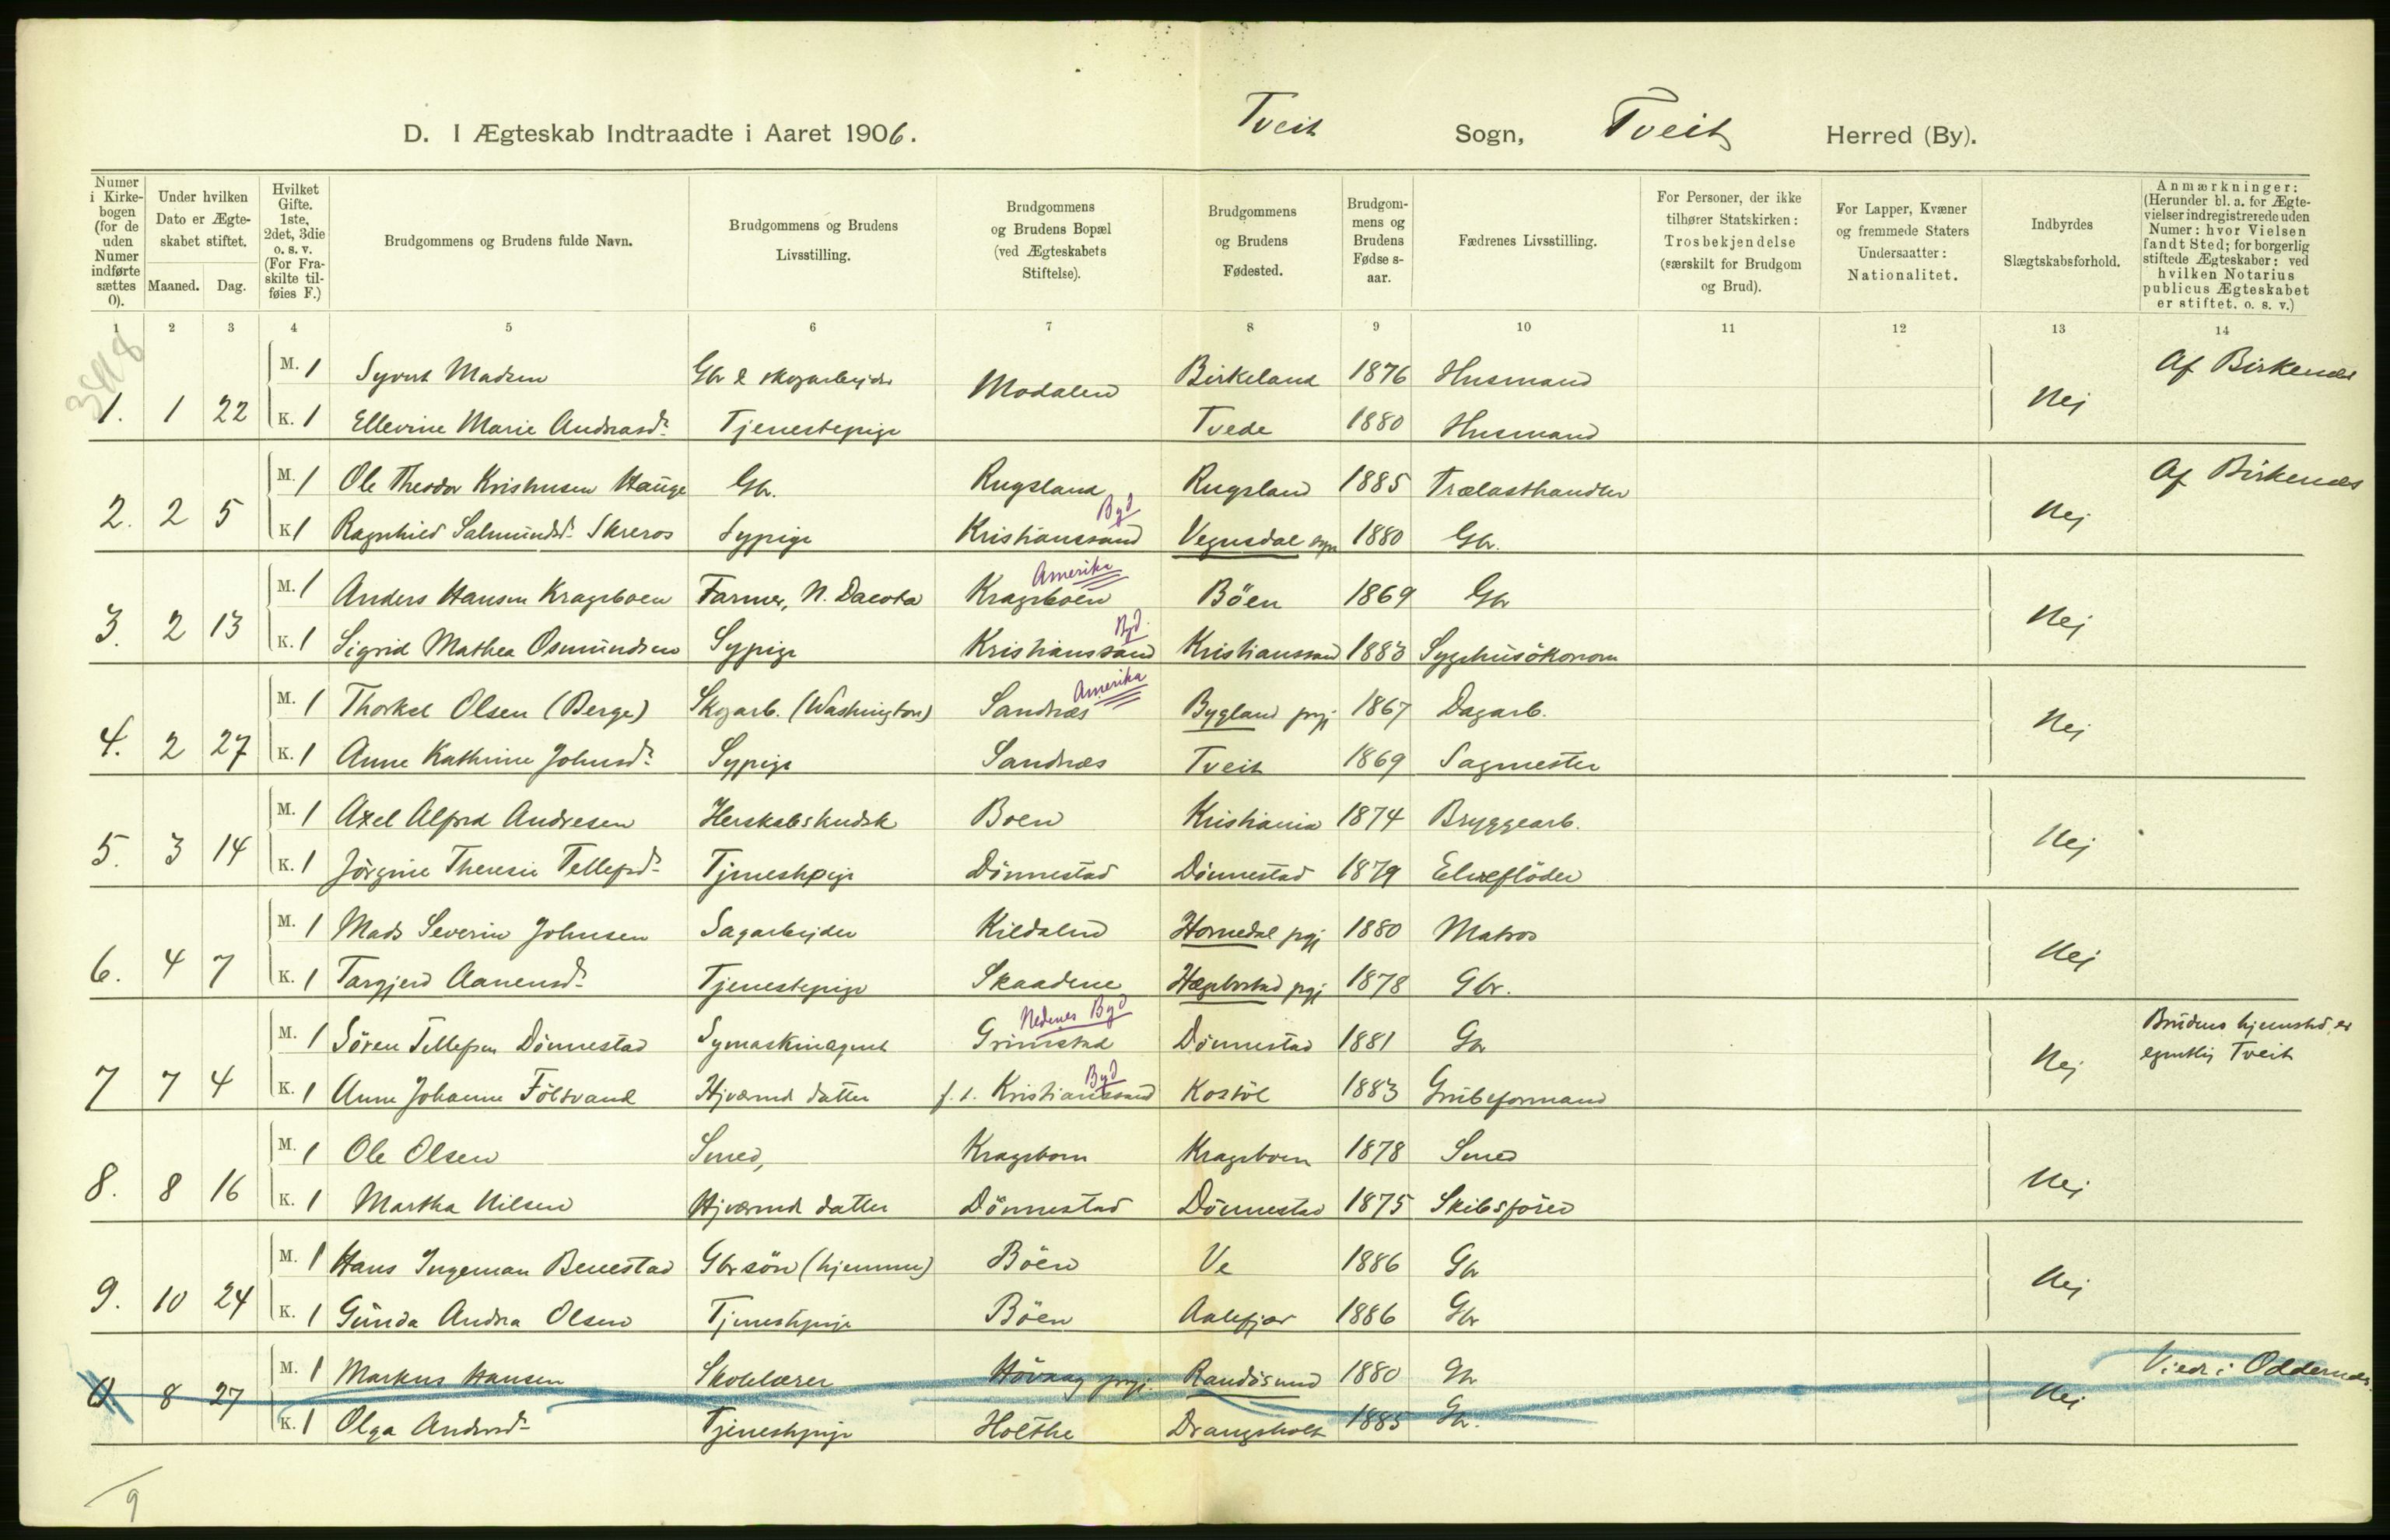 D. I Ægteskab Indtraadte i Aaret 1906. Tveit Sogn, Tveit Herred (By).
Numer i Kirkebogen (for de uden Numer indførte sættes 0). Under hvilken Dato er Ægteskabet stiftet. Maaned. Dag. Hvilket Gifte. 1ste, 2det, 3die o. s. v. (For Fraskilte tilføies F.) Brudgommens og Brudens fulde Navn. Brudgommens og Brudens Livsstilling. Brudgommens og Brudens Bopæl (ved Ægteskabets Stiftelse). Brudgommens og Brudens Fødested. Brudgommens og Brudens Fødselsaar. Fædrenes Livsstilling. For Personer, der ikke tilhører Statskirken: Trosbekjendelse (særskilt for Brudgom og Brud). For Lapper, Kvæner og fremmede Staters Undersaatter: Nationalitet. Indbyrdes Slægtskabsforhold. Anmærkninger: (Herunder bl. a. for Ægtevielser indregistrerede uden Numer: hvor Vielsen fandt Sted; for borgerlig stiftede Ægteskaber: ved hvilken Notarius publicus Ægteskabet er stiftet. o. s. v.)
1 2 3 4 5 6 7 8 9 10 11 12 13 14
M. 1 Syvert Madsen Gbr & skogarbejder Modalen Birkeland 1876 Husmand Af Birkenes
1. 1 22 K. 1 Ellevine Marie Andreasdr. Tjenestepige Tvede 1880 Husmand Nej
M. 1 Ole Theodor Kristensen Hauge Gbr. Rugsland Rugsland 1885 Trælasthandler Af Birkenes
2. 2 5 K 1 Ragnhild Salmundsdr. Skreros Sypige Kristianssand Byd Vegusdal sogn 1880 Gbr. Nej
M. 1 Anders Hansen Kragsboen Farmer, N. Dacota Kragsboen Amerika Böen 1869 Gbr
3. 2 13 K. 1 Sigrid Mathea Osmundsen Sypige Kristianssand Byd. Kristianssand 1883 Sygehusökonom Nej
M. 1 Thorkel Olsen (Berge) Skogarb. (Washington) Sandnæs Amerika Bygland prgj 1867 Dagarb.
4. 2 27 K. 1 Anne Kathrine Johnsdr. Sypige Sandnæs Tveit 1869 Sagmester Nej
M. 1 Axel Alfred Andresen Herskabskudsk Boen Kristiania 1874 Bryggearb.
5. 3 14 K. 1 Jörgine Theresie Tellefsdr. Tjenestepige Dönnestad Dönnestad 1879 Elvefløder Nej
M. 1 Mads Severin Johnsen Sagarbejder Kildalen Hornedal prgj 1880 Matros
6. 4 7 K. 1 Targjerd Aanensdr. Tjenestepige Skaadene Hægebostad prgj 1878 Gbr. Nej
M. 1 Sören Tellefsen Dönnestad Symaskinagent Grimstad Nedenes Byd Dönnestad 1881 Gbr Brudens hjemsted er egentlig Tveit
7 7 4 K. 1 Anne Johanne Fölsvand Hjværende datter f. t. Kristianssand Byd Kostöl 1883 Grubeformand Nej
M. 1 Ole Olsen Smed, Kragsboen Kragsboen 1878 Smed
8. 8 16 K. 1 Martha Nilsen Hjværende datter Dönnestad Dönnestad 1875 Skibsförer Nej
M. 1 Hans Ingeman Benestad Gbr sön (hjemme) Böen Ve 1886 Gbr
9. 10 24 K. 1 Gunda Andrea Olsen Tjenestepige Böen Aalefjær 1886 Gbr Nej
M. 1 Markus Hansen Skolelærer Hövaag prgj. Randösund 1880 Gbr Viedt i Oddernes.
0. 8 27 K. 1 Olga Andersdr. Tjenestepige Holthe Drangsholt 1885 Gbr. Nej
9